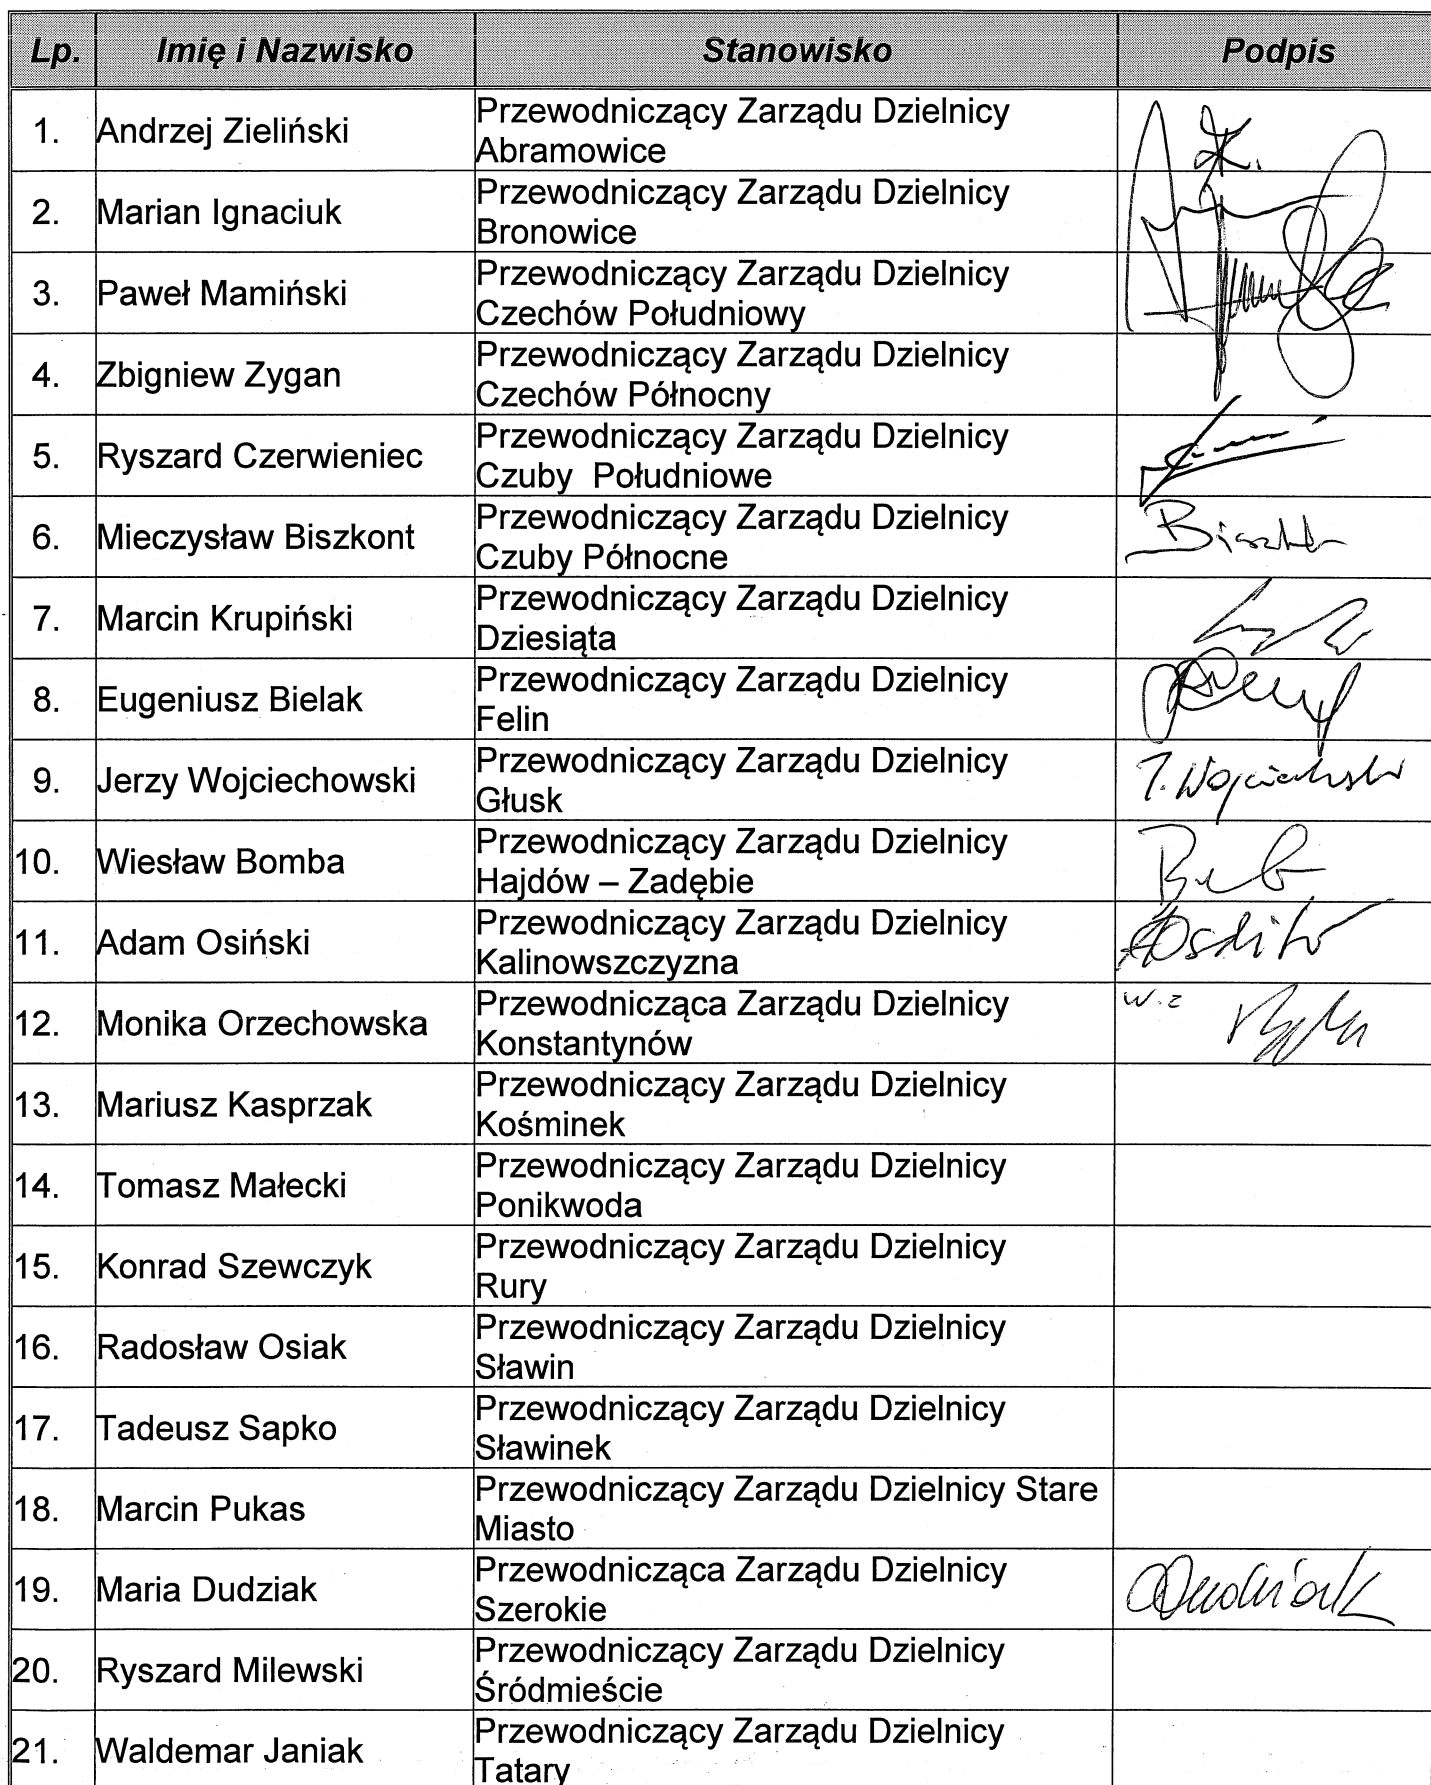 Lp. Imię i Nazwisko Stanowisko Podpis
1. Andrzej Zieliński Przewodniczący Zarządu Dzielnicy
Abramowice
2. Marian Ignaciuk Przewodniczący Zarządu Dzielnicy
Bronowice
3. Paweł Mamiński Przewodniczący Zarządu Dzielnicy
Czechów Południowy
4. Zbigniew Zygan Przewodniczący Zarządu Dzielnicy
Czechów Północny
5. Ryszard Czerwieniec Przewodniczący Zarządu Dzielnicy
Czuby Południowe
6. Mieczysław Biszkont Przewodniczący Zarządu Dzielnicy
Czuby Północne
7. Marcin Krupiński Przewodniczący Zarządu Dzielnicy
Dziesiąta
8. Eugeniusz Bielak Przewodniczący Zarządu Dzielnicy
Felin
9. Jerzy Wojciechowski Przewodniczący Zarządu Dzielnicy
Głusk
10. Wiesław Bomba Przewodniczący Zarządu Dzielnicy
Hajdów – Zadębie
11. Adam Osiński Przewodniczący Zarządu Dzielnicy
Kalinowszczyzna
12. Monika Orzechowska Przewodnicząca Zarządu Dzielnicy w.z
Konstantynów
13. Mariusz Kasprzak Przewodniczący Zarządu Dzielnicy
Kośminek
14. Tomasz Małecki Przewodniczący Zarządu Dzielnicy
Ponikwoda
15. Konrad Szewczyk Przewodniczący Zarządu Dzielnicy
Rury
16. Radosław Osiak Przewodniczący Zarządu Dzielnicy
Sławin
17. Tadeusz Sapko Przewodniczący Zarządu Dzielnicy
Sławinek
18. Marcin Pukas Przewodniczący Zarządu Dzielnicy Stare
Miasto
19. Maria Dudziak Przewodnicząca Zarządu Dzielnicy
Szerokie
20. Ryszard Milewski Przewodniczący Zarządu Dzielnicy
Śródmieście
21. Waldemar Janiak Przewodniczący Zarządu Dzielnicy
Tatary